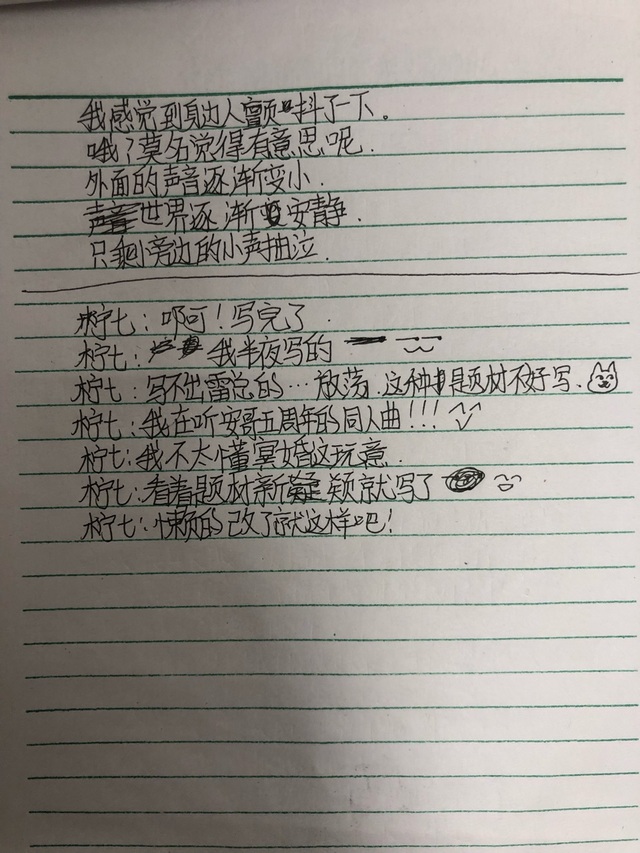 我感觉到身边人颤抖了一下。
哦?莫名觉得有意思呢.
外面的声音逐渐变小.
世界逐渐变安静.
只剩旁边的小声抽泣.
柠七:啊!写完了.
柠七:我半夜写的
柠七:写不出雷总的…放荡.这种题材不好写.
柠七:我在听安哥五周年的同人曲!!!
柠七:我不太懂冥婚这玩意.
柠七:看着题材新颖就写了
柠七:懒的改了就这样吧!